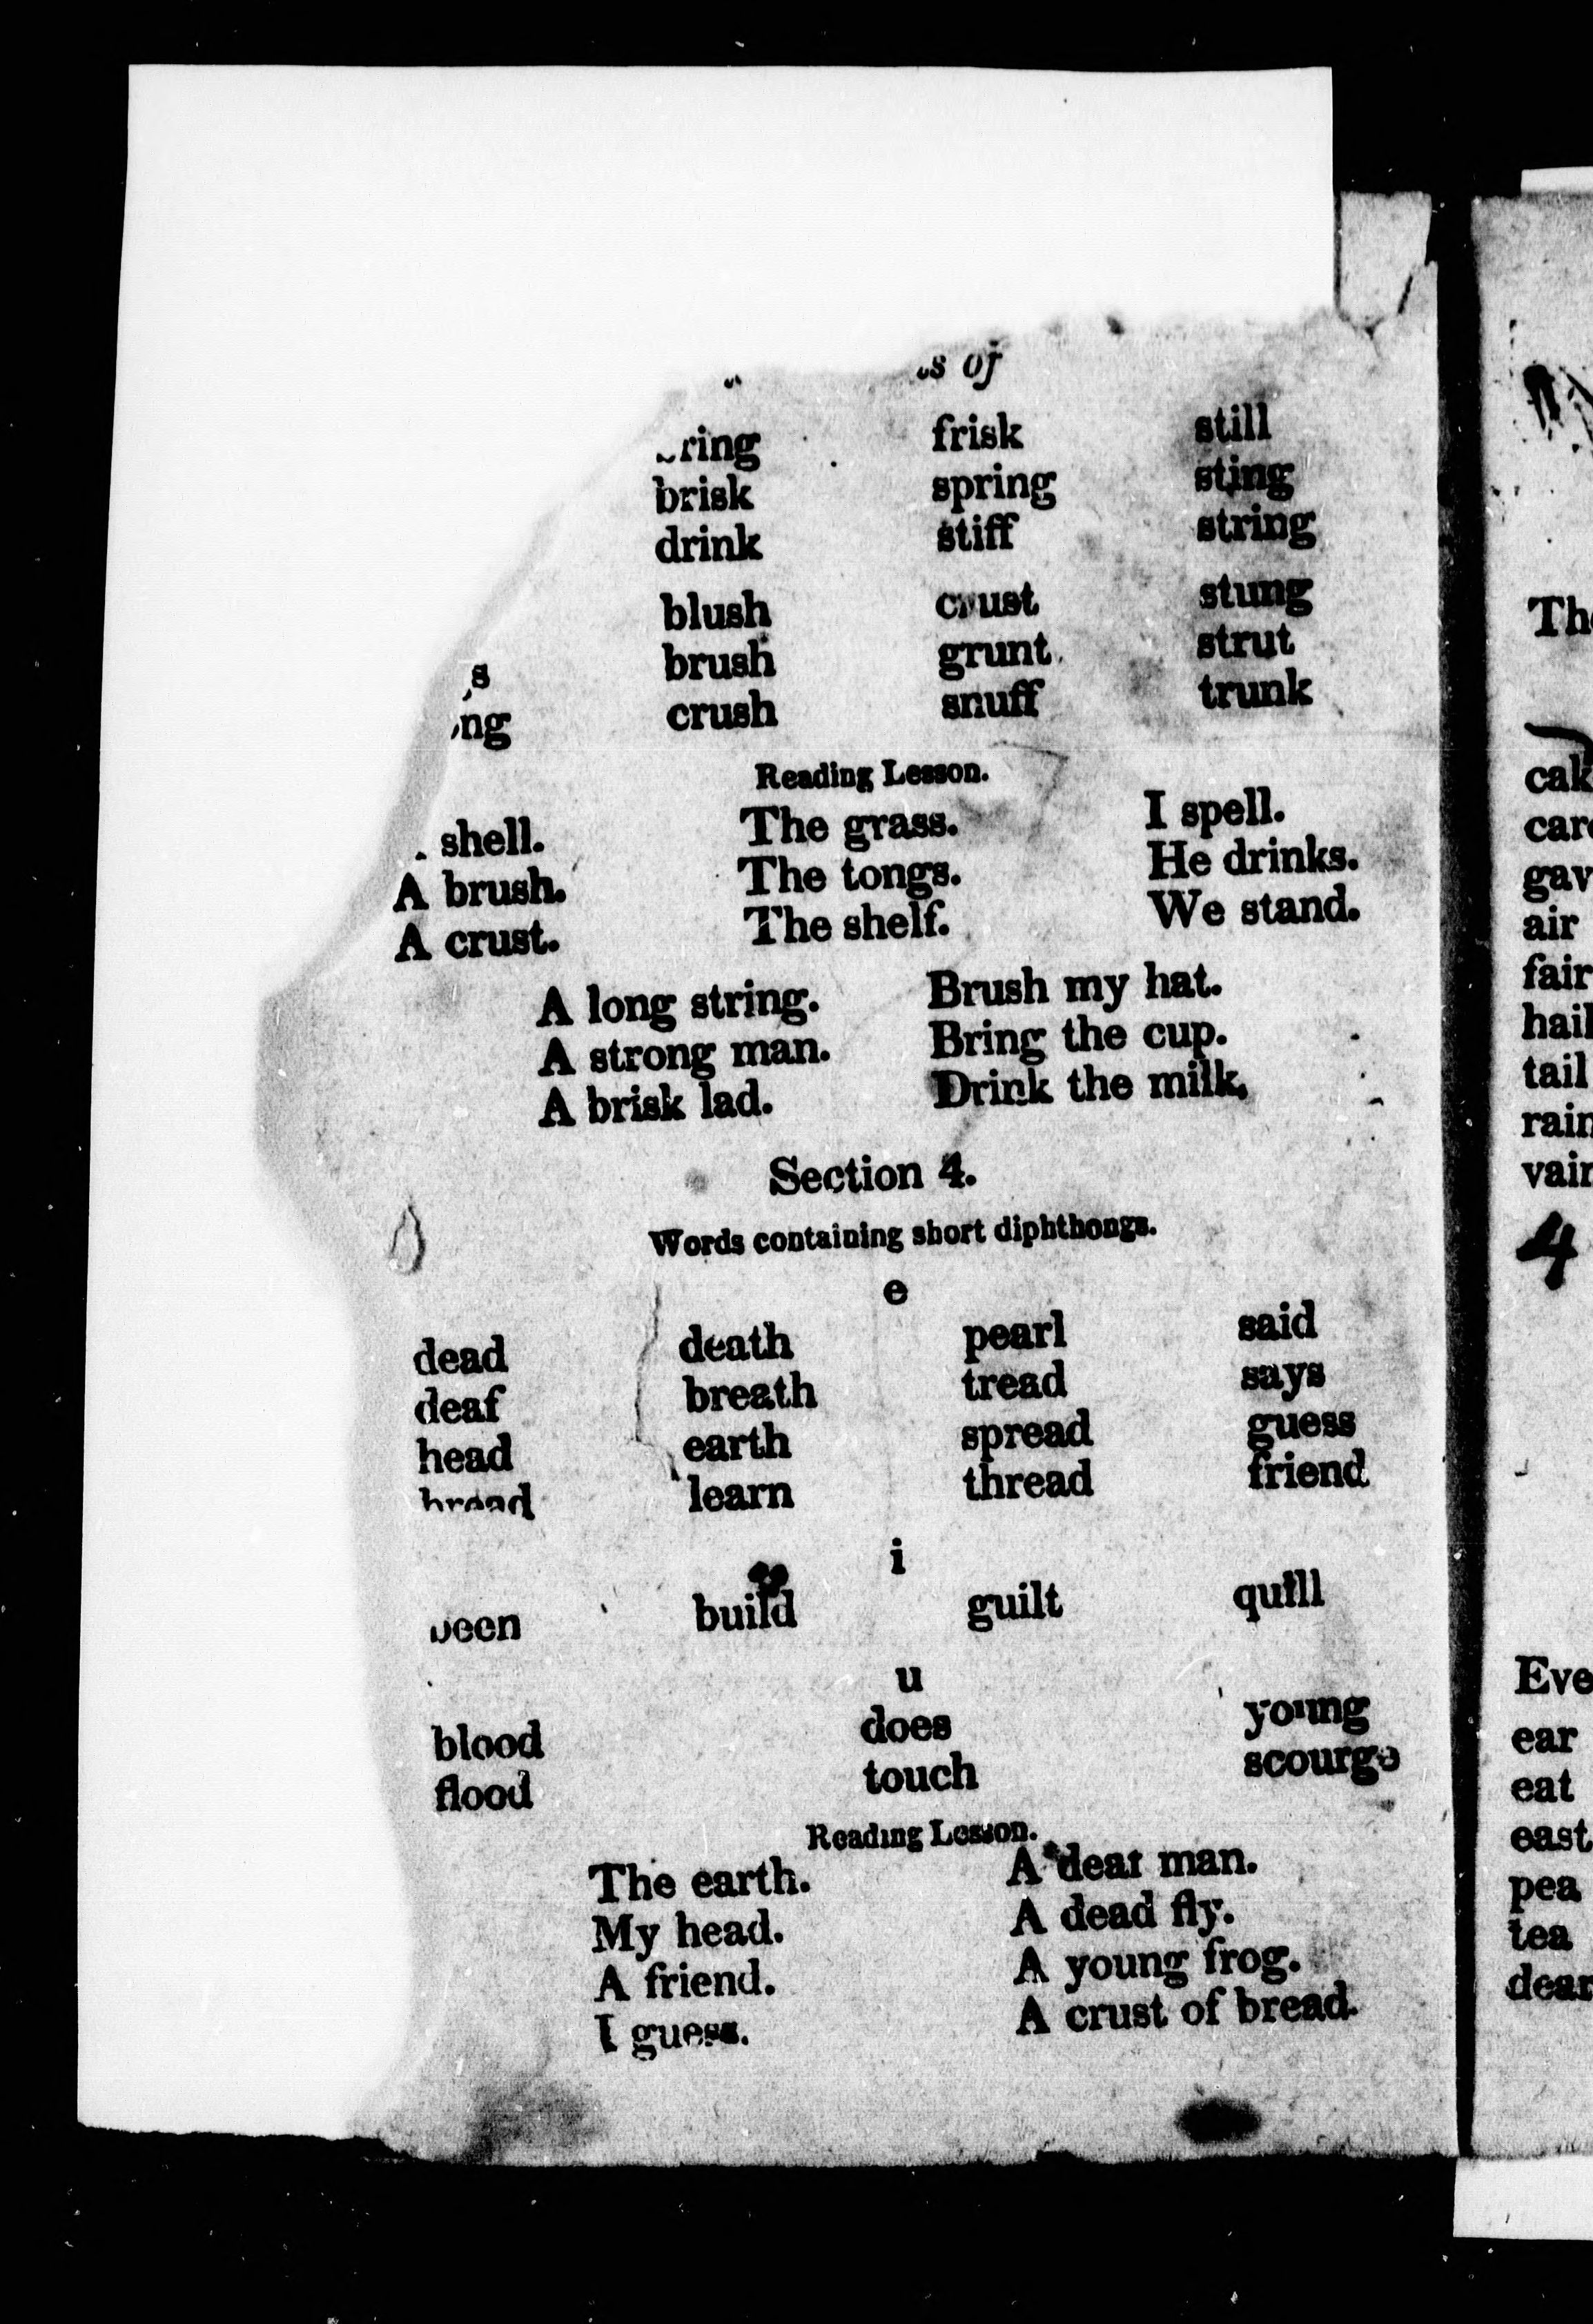 of
frisk still
brisk spring sting
drink stiff string
blush crust stung
brush grunt strut
crush snuff trunk
Reading Lesson.
shell. The grass. I spell.
A brush. The tongs. He drinks.
A crust. The shelf. We stand.
A long string. Brush my hat.
A strong man. Bring the cup.
A brisk lad. Drink the milk.
Section 4.
Words containing short diphthongs.
e
dead death pearl said
deaf breath tread says
head earth spread guess
bread learn thread friend
i
been build guilt quill
u
blood does young
flood touch scourge
Reading Lesson.
The earth. A deaf man.
My head. A dead fly.
A friend. A young frog.
I guess. A crust of bread.
air
fair
tail
4
ear
eat
east
pea
tea
dear